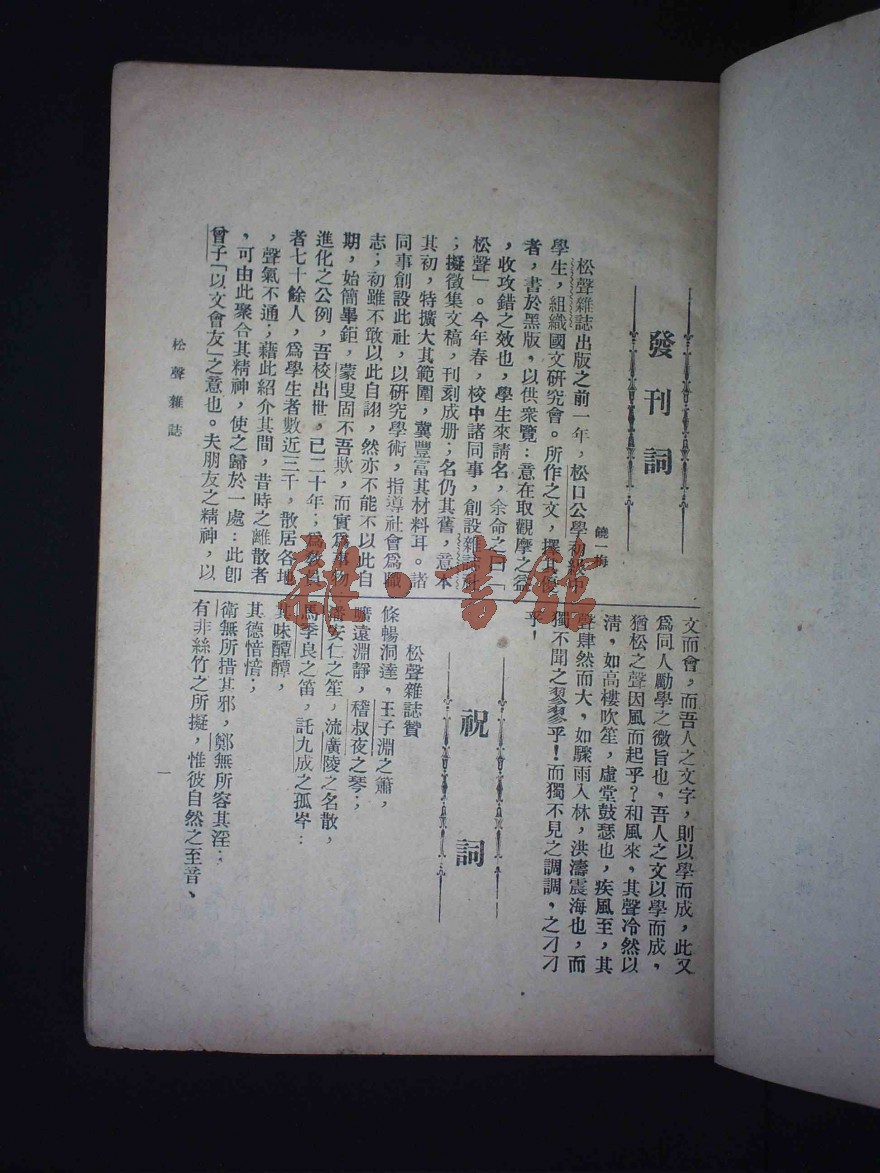 發刊詞
饒一梅
松聲雜誌出版之前一年,松口公學初級中
學生,組織國文研究會。所作之文,擇其優
者,書於黑版,以供衆覽:意在取觀摩之益
,收攻錯之效也,學生來請名,余命之曰「
松聲」。今年春,校中諸同事,創設雜誌社
;擬徵集文稿,刊刻成册;名仍其舊,意本
其初,特擴大其範圍,冀豐富其材料耳。諸
同事創設此社,以研究學術,指導社會爲職
志;初雖不敢以此自詡,然亦不能不以此自
期,始簡畢鉅,蒙叟固不吾欺,而實爲事物
進化之公例,吾校出世,已二十年;爲敎員
者七十餘人,爲學生者數近三千,散居各地
,聲氣不通;藉此紹介其間,昔時之離散者
,可由此聚合其精神,使之歸於一處:此卽
曾子「以文會友」之意也。夫朋友之精神,以
文而會,而吾人之文字,則以學而成,此又
爲同人勵學之微旨也,吾人之文以學而成,
猶松之聲因風而起乎?和風來,其聲冷然以
淸,如高樓吹笙,虛堂鼓瑟也,疾風至,其
聲肆然而大,如驟雨入林,洪濤震海也,而
獨不聞之翏翏乎!而獨不見之調調,之刁刁
乎!
祝詞
松聲雜誌贊
條暢洞達,王子淵之簫,
曠遠淵靜,稽叔夜之琴;
潘安仁之笙,流廣陵之名散,
馬季良之笛,託九成之孤岑:
其味醰醰,
其德愔愔;
衛無所措其邪,鄭無所容其淫;
有非絲竹之所擬,惟彼自然之至音、
松聲雜誌
一
雜·書館